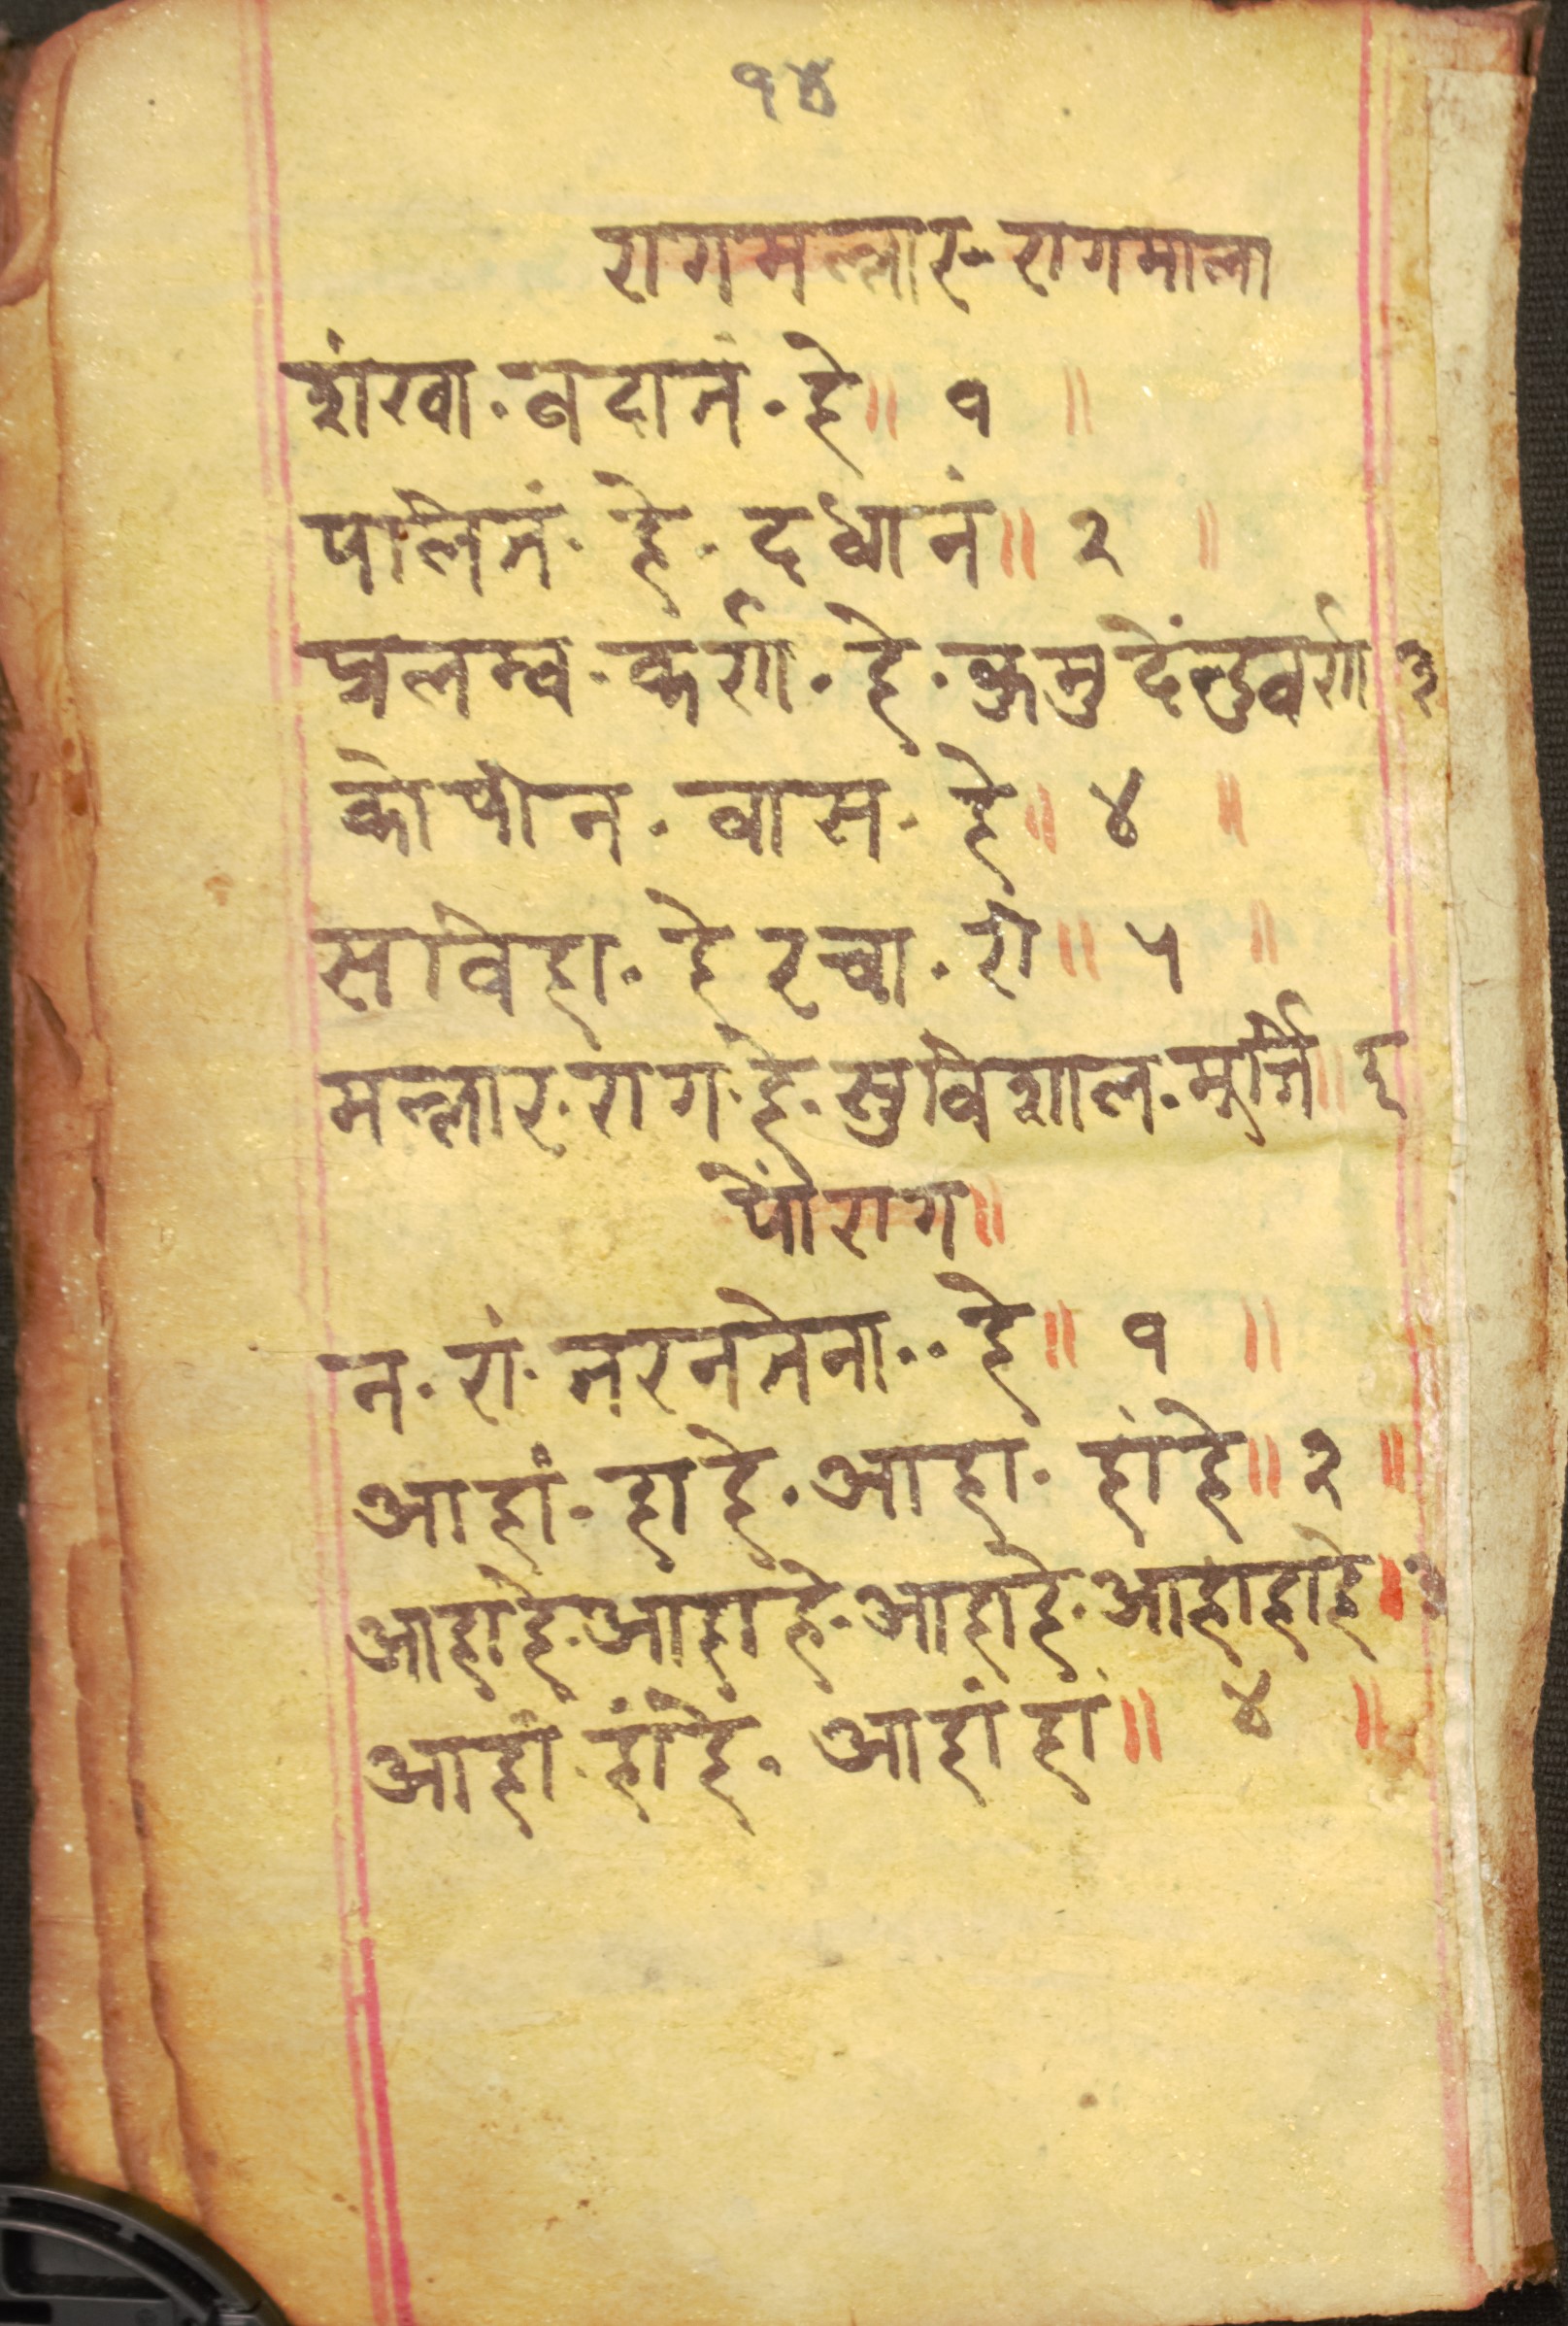 १४
रागमल्लार-रागमाला
शंखा.वदानं.हे॥ १ ॥
पलितं.हे.दधानं॥ २ ॥
प्रलम्ब.कर्ण.हे.कुमुदेंन्दुवर्ण ३
कोपीन.वास.हे॥ ४ ॥
सविहा.हे रचा.री॥ ५ ॥
मल्लार.राग.हे.सुविशाल.मूर्त्ति॥ ६
पौंराग॥
न.रां.नरनतेना..हे॥ १ ॥
आहां.हाहे.आहा.हांहे॥ २ ॥
आहाहे.आहाहे.आहाहे.आहाहाहे॥ ३
आहा.हांहे.आहांहां॥ ४ ॥